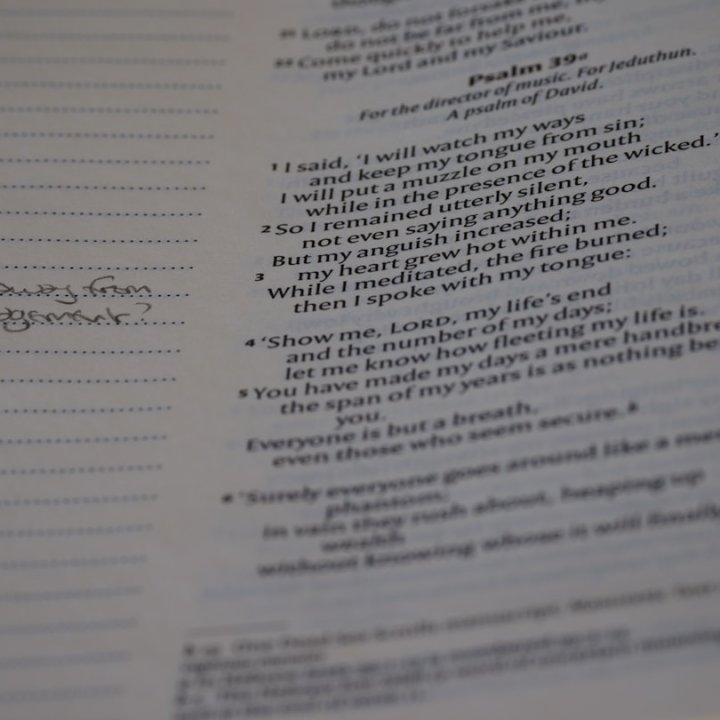 LORD, do not forsake
do not be far from me, my
22 Come quickly to help me,
my Lord and my Saviour.
Psalm 39a
For the director of music. For Jeduthun.
A psalm of David.
1 I said, ‘I will watch my ways
and keep my tongue from sin;
I will put a muzzle on my mouth
while in the presence of the wicked.’
2 So I remained utterly silent,
not even saying anything good.
But my anguish increased;
3 my heart grew hot within me.
While I meditated, the fire burned;
then I spoke with my tongue:
4 ‘Show me, LORD, my life’s end
and the number of my days;
let me know how fleeting my life is.
5 You have made my days a mere handbre
the span of my years is as nothing be
you.
Everyone is but a breath,
even those who seem secure.b
6 ‘Surely everyone goes around like a me
phantom;
in vain they rush about, heaping up
wealth
without knowing whose it will finally
away from